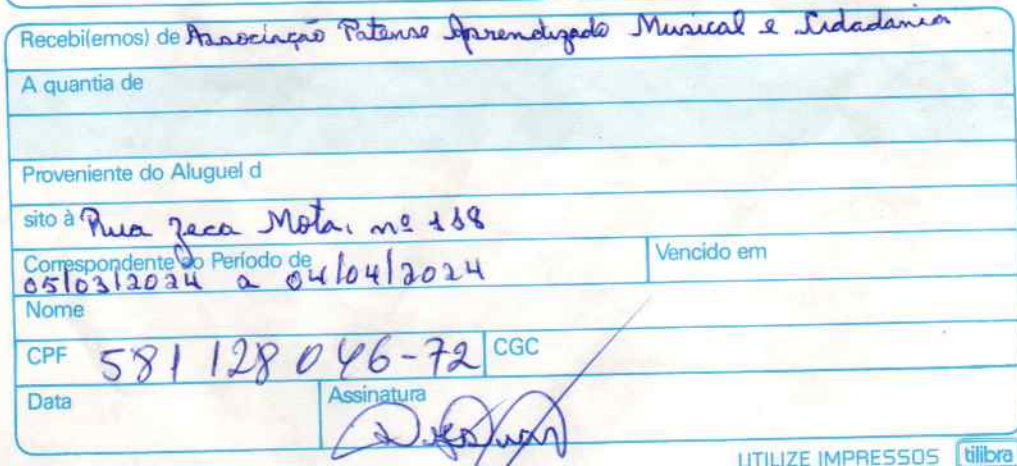 Recebi(emos) de Associação Patense Aprendizado Musical e Cidadania
A quantia de
Proveniente do Aluguel d
sito à Rua Zeca Mota, nº 118
Correspondente ao Período de
05/03/2024 a 04/04/2024
Vencido em
Nome
CPF 581 128 046-72 CGC
Data Assinatura
UTILIZE IMPRESSOS tilibra